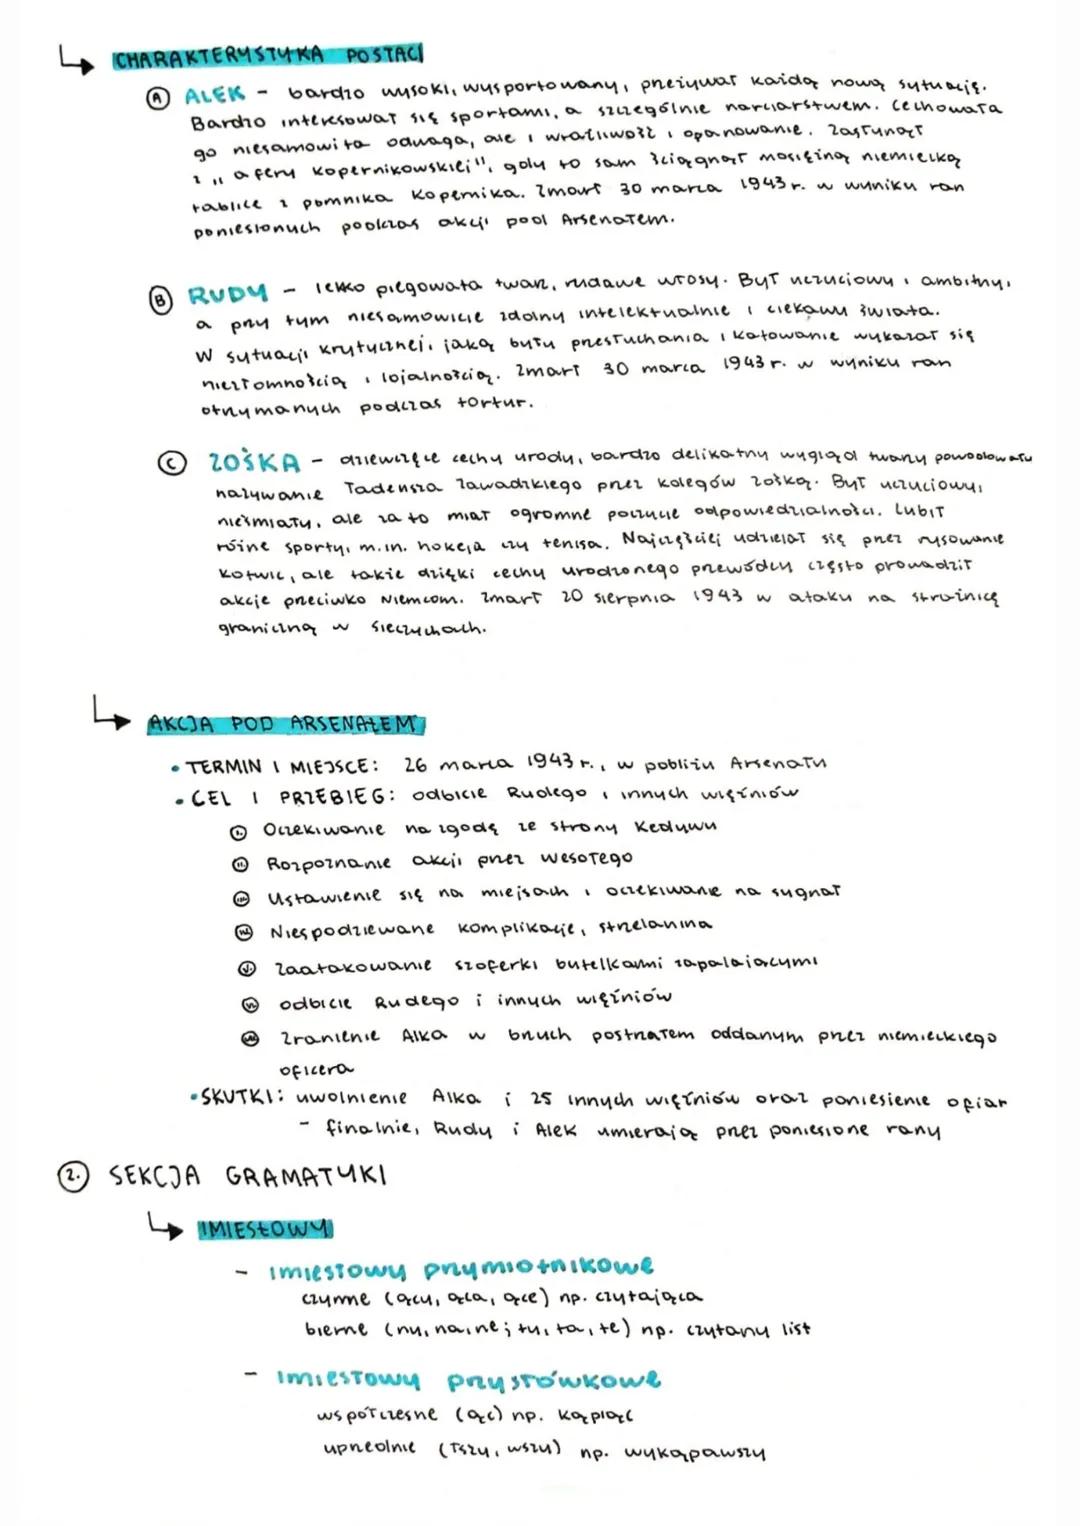 CHARAKTERYSTYKA POSTACI
Ⓐ ALEK - bardzo wysoki, wysportowany, przeżywał każdą nową sytuację.
Bardzo interesował się sportami, a szczególnie narciarstwem. Cechowała
go niesamowita odwaga, ale i wrażliwość i opanowanie. Zasłynął
z „afery Kopernikowskiej", gdy to sam ściągnął mosiężną niemiecką
tablicę z pomnika Kopernika. Zmarł 30 marca 1943 r. w wyniku ran
poniesionych podczas akcji pod Arsenałem.
Ⓑ RUDY - lekko piegowata twarz, rudawe włosy. Był uczuciowy i ambitny,
a przy tym niesamowicie zdolny intelektualnie i ciekawy świata.
W sytuacji krytycznej, jaką były przesłuchania i katowanie wykazał się
niezłomnością i lojalnością. Zmarł 30 marca 1943 r. w wyniku ran
otrzymanych podczas tortur.
Ⓒ ZOŚKA - dziewczęce cechy urody, bardzo delikatny wygląd twarzy powodowały
nazywanie Tadeusza Zawadzkiego przez kolegów Zośką. Był uczuciowy,
nieśmiały, ale za to miał ogromne poczucie odpowiedzialności. Lubił
różne sporty, m.in. hokeja czy tenisa. Najczęściej udzielał się przez rysowanie
kotwic, ale także dzięki cechy urodzonego przewódcy często prowadził
akcje przeciwko Niemcom. Zmarł 20 sierpnia 1943 w ataku na strażnicę
graniczną w Sieczychach.
AKCJA POD ARSENAŁEM
• TERMIN I MIEJSCE: 26 marca 1943 r., w pobliżu Arsenału
• CEL I PRZEBIEG: odbicie Rudego i innych więźniów
I. Oczekiwanie na zgodę ze strony Kedywu
II. Rozpoznanie akcji przez Wesołego
III. Ustawienie się na miejscach i oczekiwanie na sygnał
IV. Niespodziewane komplikacje, strzelanina
V. Zaatakowanie szoferki butelkami zapalającymi
VI. odbicie Rudego i innych więźniów
VII. Zranienie Alka w brzuch postrzałem oddanym przez niemieckiego
oficera
• SKUTKI: uwolnienie Alka i 25 innych więźniów oraz poniesienie ofiar
- finalnie, Rudy i Alek umierają przez poniesione rany
2. SEKCJA GRAMATYKI
IMIESŁOWY
- imiesłowy przymiotnikowe
czynne (ący, ąca, ące) np. czytająca
bierne (ny, na, ne; ty, ta, te) np. czytany list
- imiesłowy przysłówkowe
współczesne (ąc) np. kąpiąc
uprzednie (łszy, wszy) np. wykąpawszy